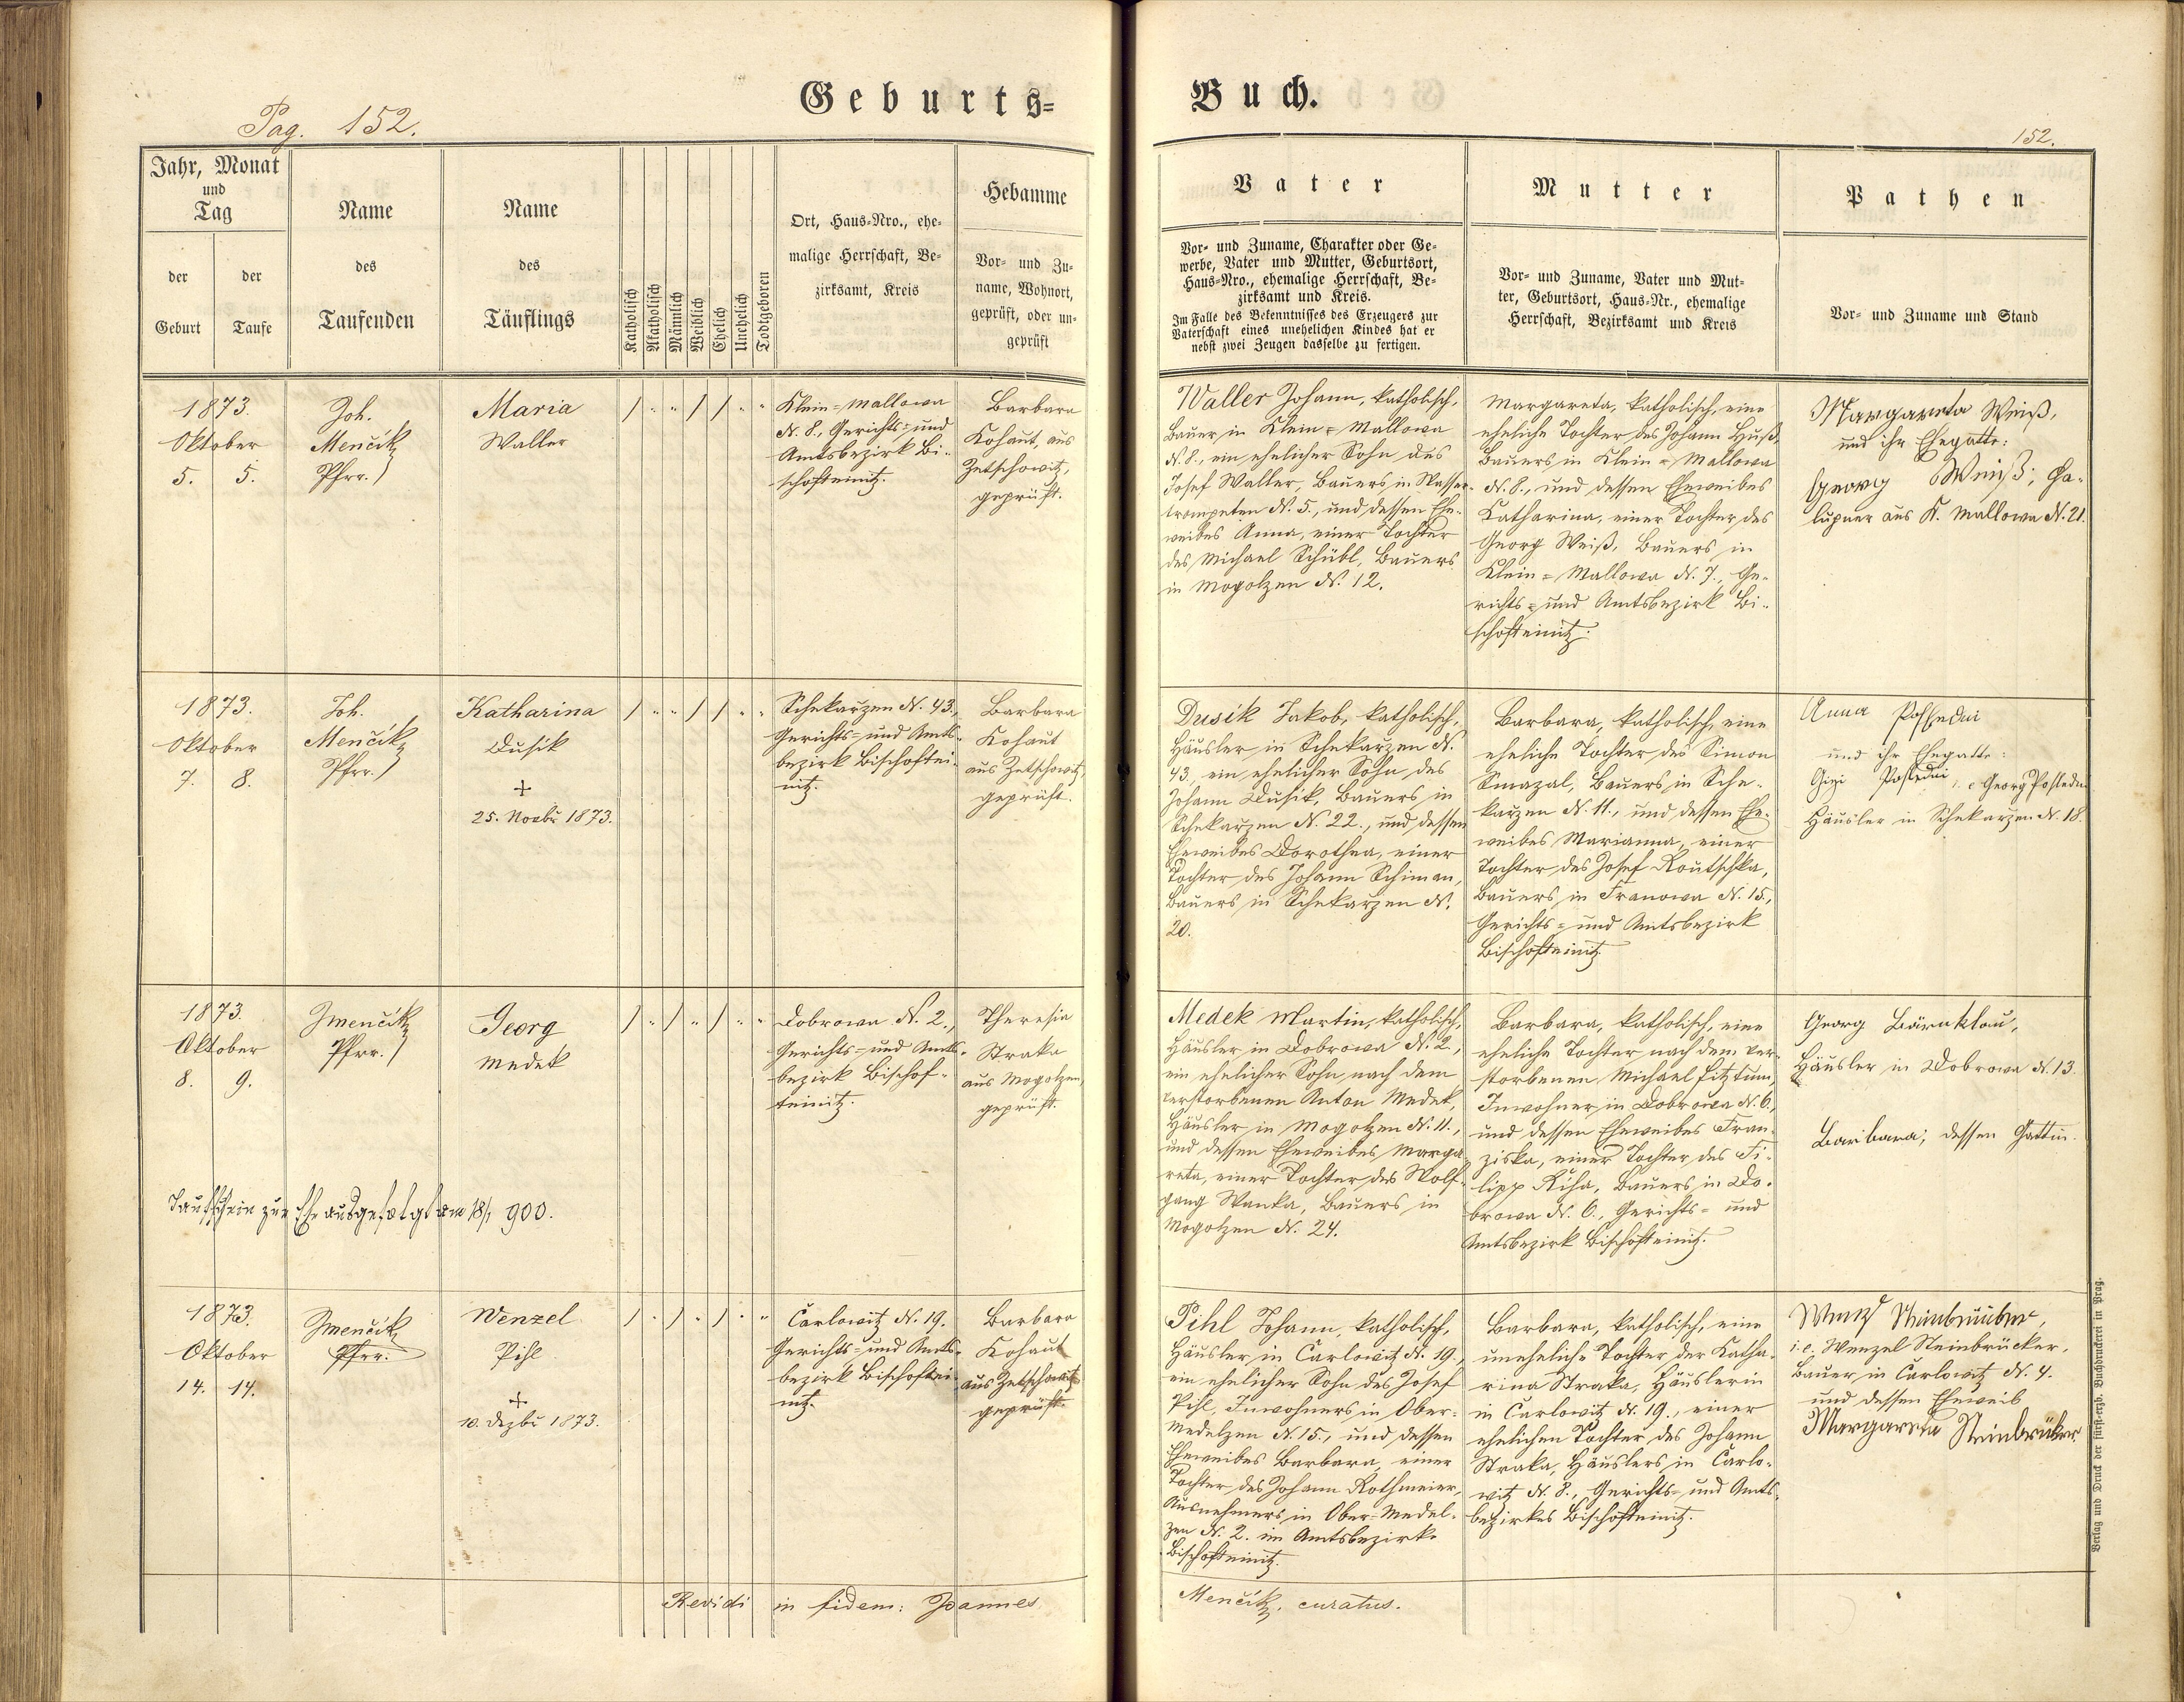 Pag. 152.
Geburts-
Buch.
152.
Jahr, Monat
und
Tag
der
Geburt
der
Taufe
Name
des
Taufenden
Name
des
Täuflings
Katholisch
Akatholisch
Männlich
Weiblich
Ehelich
Unehelich
Todtgeboren
Ort, Haus-Nro., ehe-
malige Herrschaft, Be-
zirksamt, Kreis
Hebamme
Vor- und Zu-
name, Wohnort,
geprüft, oder un-
geprüft
Vater
Vor- und Zuname, Charakter oder Ge-
werbe, Vater und Mutter, Geburtsort,
Haus-Nro., ehemalige Herrschaft, Be-
zirksamt und Kreis.
Im Falle des Bekenntnisses des Erzeugers zur
Vaterschaft eines unehelichen Kindes hat er
nebst zwei Zeugen dasselbe zu fertigen.
Mutter
Vor- und Zuname, Vater und Mut-
ter, Geburtsort, Haus-Nr., ehemalige
Herrschaft, Bezirksamt und Kreis
Pathen
Vor- und Zuname und Stand
1873.
Oktober
5. 5.
Joh.
Menčik
Pfrr.
Maria
Waller
Klein-Mallowa
N. 8., Gerichts- und
Amtsbezirk Bi-
schofteinitz.
Barbara
Kohaut, aus
Zetschowitz,
geprüft.
Waller Johann, katholisch,
Bauer in Klein-Mallowa
N. 8., ein ehelicher Sohn des
Josef Waller, Bauers in Wasser-
trompeten N. 5., und dessen Ehe-
weibes Anna, einer Tochter
des Michael Schübl, Bauers
in Mogolzen N. 12.
Margareta, katholisch, eine
eheliche Tochter des Johann Huß,
Bauers in Klein-Mallowa
N. 8., und dessen Eheweibes
Katharina, einer Tochter des
Georg Weiß, Bauers in
Klein-Mallowa N. 7., Ge-
richts- und Amtsbezirk Bi-
schofteinitz.
Margareta Weiß,
und ihr Ehegatte:
Georg Weiß; Ha-
lupner aus K. Mallowa N. 21.
1873.
Oktober
7. 8.
Joh.
Menčik
Pfrr.
Katharina
Dusik
+
25. Novbr 1873.
Schekarzen N. 43.,
Gerichts- und Amts-
bezirk Bischoftei-
nitz.
Barbara
Kohaut
aus Zetschowitz,
geprüft.
Dusik Jakob, katholisch,
Häusler in Schekarzen N.
43, ein ehelicher Sohn des
Johann Dusik, Bauers in
Schekarzen N. 22., und dessen
Eheweibes Dorothea, einer
Tochter des Johann Schiman,
Bauers in Schekarzen N.
20.
Barbara, katholisch, eine
eheliche Tochter des Simon
Smazal, Bauers in Sche-
karzen N. 11., und dessen Ehe-
weibes Marianna, einer
Tochter des Josef Routschka,
Bauers in Franowa N. 15.,
Gerichts- und Amtsbezirk
Bischofteinitz.
Anna Possedni
und ihr Ehegatte:
Posledni, Georg Posledni
Häusler in Schekarzen N. 18.
1873.
Oktober
8. 9.
Jmenčik
Pfrr.
Georg
Medek
Dobrowa N. 2.,
Gerichts- und Amts-
bezirk Bischof-
teinitz.
Theresia
Straka
aus Mogolzen,
geprüft.
Medek Martin, katholisch,
Häusler in Dobrowa N. 2.,
ein ehelicher Sohn nach dem
verstorbenen Anton Medek,
Häusler in Mogolzen N. 11.,
und dessen Eheweibes Marga-
reta, einer Tochter des Wolf-
gang Wanka, Bauers in
Mogolzen N. 24.
Barbara, katholisch, eine
eheliche Tochter nach dem ver-
storbenen Michael Fitztum,
Inwohner in Dobrowa N. 6.,
und dessen Eheweibes Fran-
ziska, einer Tochter des Fi-
lipp Riha, Bauers in Do-
browa N. 6., Gerichts- und
Amtsbezirk Bischofteinitz.
Georg Bärnklau,
Häusler in Dobrowa N. 13.
Barbara, dessen Gattin.
Taufschein zur Ehe ausgefolgt am 18/1 900.
1873.
Oktober
14. 14.
Jmenčik
Pfrr.
Wenzel
Pihl
+
10. Dezbr 1873.
Carlowitz N. 19.
Gerichts- und Amts-
bezirk Bischoftei-
nitz.
Barbara
Kohaut
aus Zetschowitz
geprüft.
Pihl Johann, katholisch,
Häusler in Carlowitz N. 19.,
ein ehelicher Sohn des Josef
Pihl, Inwohners in Ober-
medelzen N. 15., und dessen
Eheweibes Barbara, einer
Tochter des Johann Rothmeier,
Ausnehmers in Ober-Medel-
zen N. 2. im Amtsbezirke
Bischofteinitz.
Barbara, katholisch, eine
uneheliche Tochter der Katha-
rina Straka, Häuslerin
in Carlowitz N. 19., einer
ehelichen Tochter des Johann
Straka, Häuslers in Carlo-
witz N. 8., Gerichts- und Amts-
bezirkes Bischofteinitz.
Wenzl Steinbrücker,
i. e. Wenzel Steinbrücker,
Bauer in Carlowitz N. 4.
und dessen Eheweib
Margareta Steinbrücker.
Revidi in fidem: Joannes
Menčik, curatus.
Verlag und Druck der fürst-erzb. Buchdruckerei in Prag.